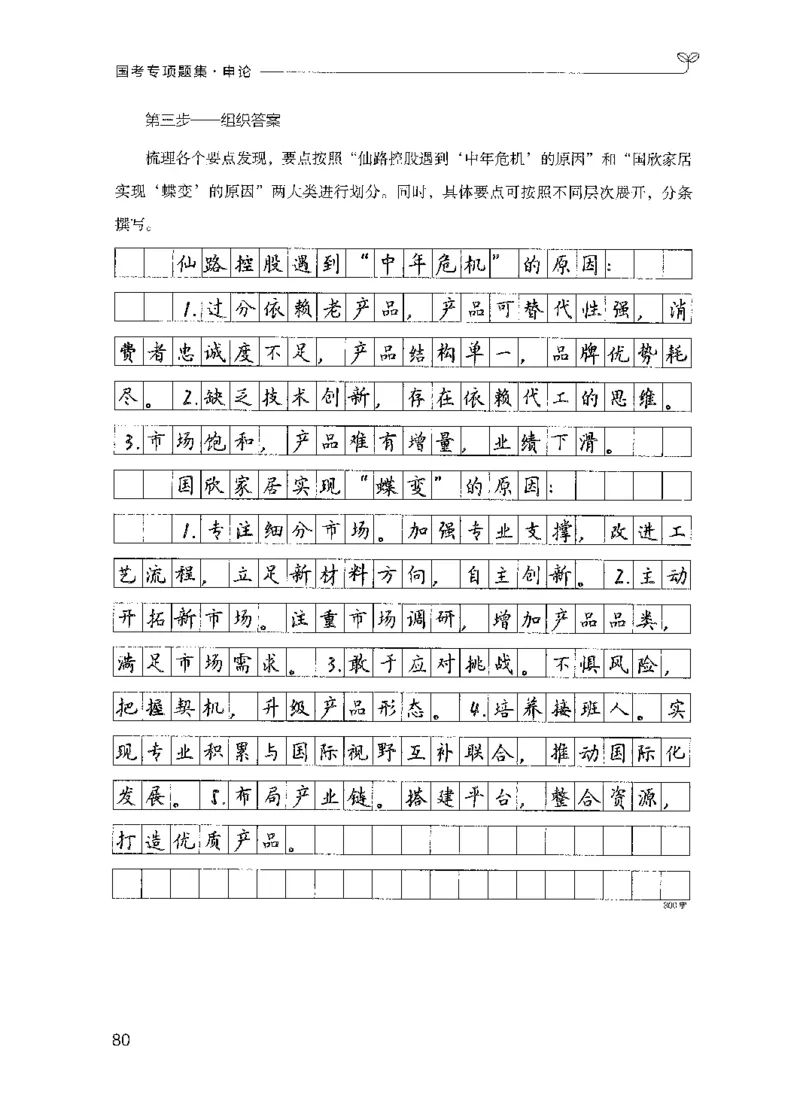 国考专项题集·申论
第三步——组织答案
梳理各个要点发现，要点按照“仙路控股遇到‘中年危机’的原因”和“国欣家居
实现‘蝶变’的原因”两大类进行划分。同时，具体要点可按照不同层次展开，分条
撰写。
仙路控股遇到“中年危机”的原因：
1.过分依赖老产品，产品可替代性强，消
费者忠诚度不足，产品结构单一，品牌优势耗
尽。2.缺乏技术创新，存在依赖代工的思维。
3.市场饱和，产品难有增量，业绩下滑。
国欣家居实现“蝶变”的原因：
1.专注细分市场。加强专业支撑，改进工
艺流程，立足新材料方向，自主创新。2.主动
开拓新市场。注重市场调研，增加产品品类，
满足市场需求。3.敢于应对挑战。不惧风险，
把握契机，升级产品形态。4.培养接班人。实
现专业积累与国际视野互补联合，推动国际化
发展。5.布局产业链。搭建平台，整合资源，
打造优质产品。
300字
80